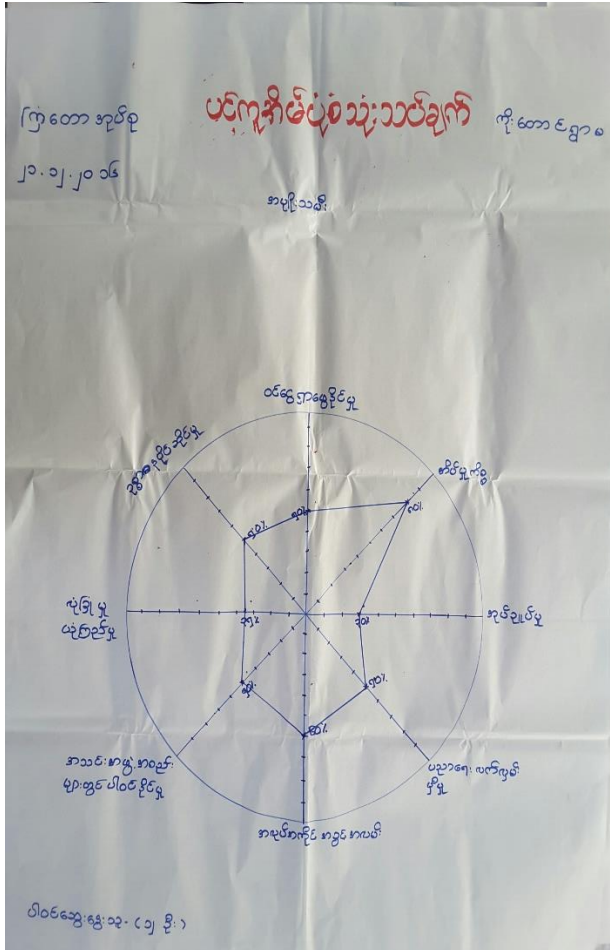 ကြံတောအုပ်စု
ပင့်ကူအိမ်ပုံစံသုံးသပ်ချက်
ကိုးတောင်ရွာမ
၂၁.၁၂.၂၀၁၆
အမျိုးသမီး
ဝင်ငွေရှာဖွေနိုင်မှု
အိမ်မှုကိစ္စ
အုပ်ချုပ်မှု
ပညာရေး လက်လှမ်း
မှီမှု
အလုပ်အကိုင် အခွင့်အလမ်း
အသင်းအဖွဲ့ အစည်း
များတွင် ပါဝင်နိုင်မှု
လုံခြုံမှု
ယုံကြည်မှု
ပိုင်ဆိုင်မှု
၅၀%
၈၀%
၃၀%
၅၀%
၆၀%
၅၀%
၃၅%
၅၀%
ပါဝင်ဆွေးနွေးသူ - (၁၂ ဦး)